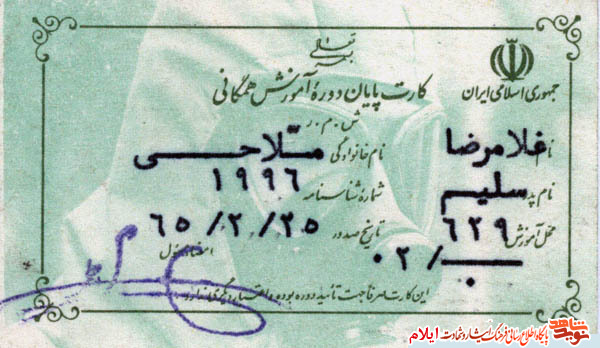 بسمه تعالی
جمهوری اسلامی ایران
کارت پایان دوره آموزش همگانی
ش . م . ر
نام غلامرضا نام خانوادگی ملاحی
نام پدر سلیم شماره شناسنامه ۱۹۹۶
محل آموزش ۶۲۹ تاریخ صدور ۶۵/۲/۲۵
۰۲/۰
امضاء مسئول
این کارت صرفاً جهت تأیید دوره بوده و اعتبار دیگری ندارد
نوید شاهد
پایگاه اطلاع رسانی فرهنگ ایثار و شهادت ایلام